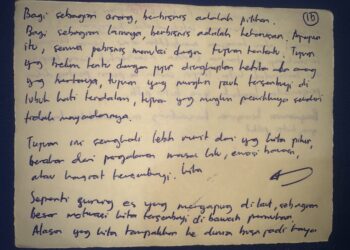 (15)
Bagi sebagian orang, berbisnis adalah pilihan.
Bagi sebagian lainnya, berbisnis adalah keharusan. Apapun
itu, semua pebisnis memulai dengan tujuan tertentu. Tujuan
yang belum tentu dengan jujur diungkapkan ketika ada orang
yang bertanya, tujuan yang mungkin jauh tersembunyi di
lubuk hati terdalam, tujuan yang mungkin pemiliknya sendiri
tidak menyadarinya.
Tujuan ini seringkali lebih rumit dari yg kita pikir,
berakar dari pengalaman masa lalu, emosi
atau hasrat tersembunyi. Kita
Seperti gunung es yang mengapung di laut, sebagian
besar motivasi kita tersembunyi di bawah permukaan.
Alasan yang kita tampakkan ke dunia bisa jadi hanya